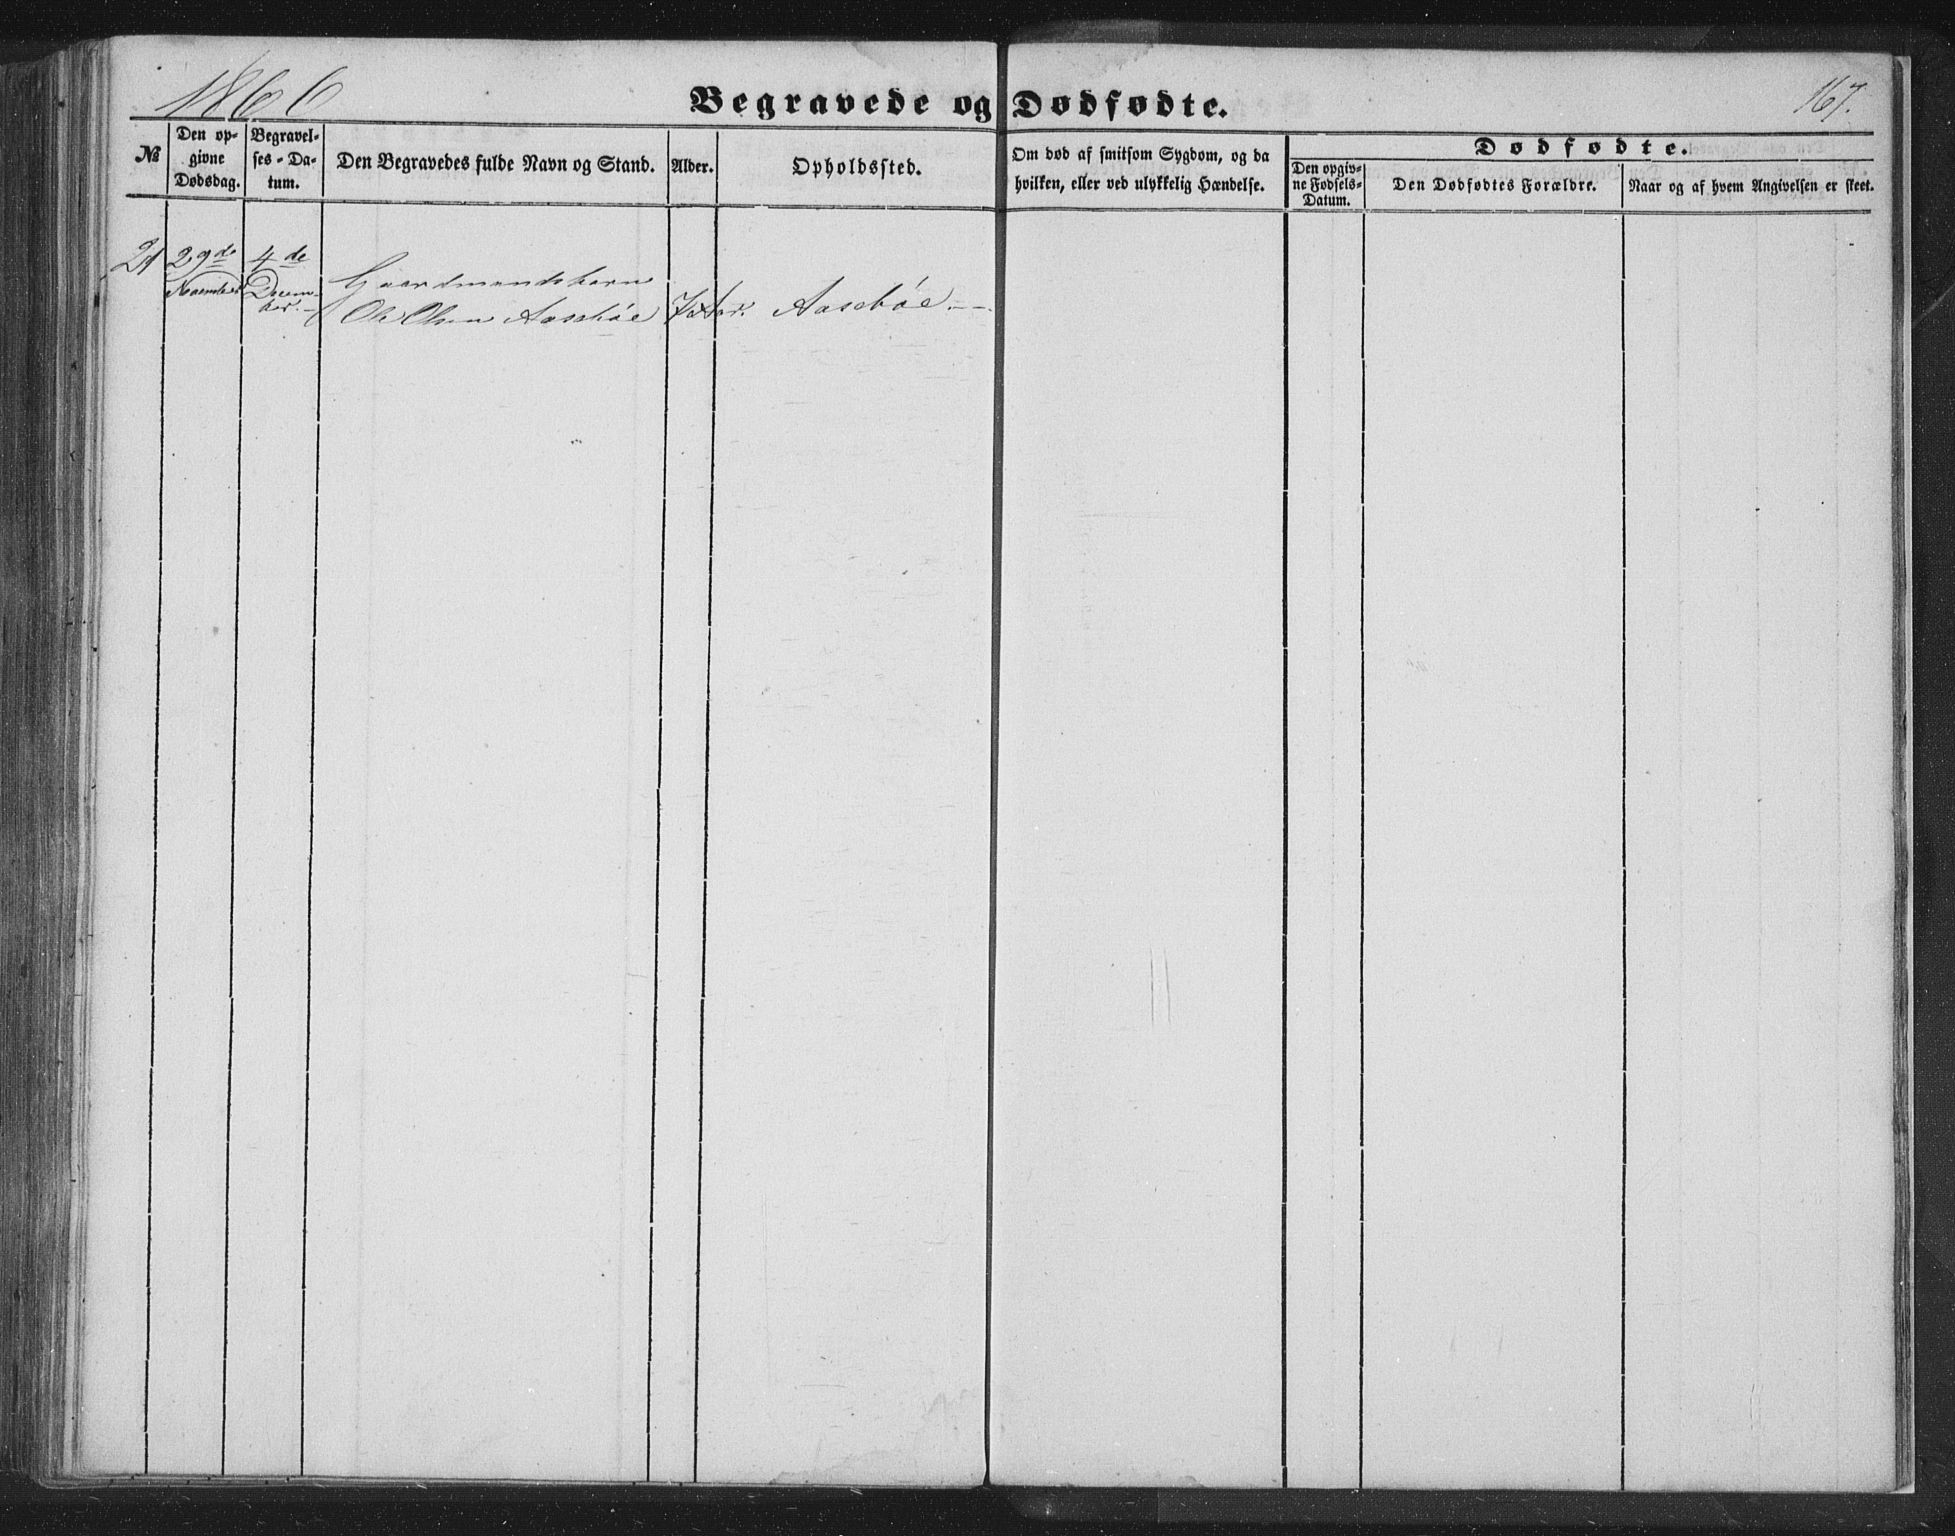 1866
Begravede og Dødfødte.
167.
№
Den op-
givne
Dødsdag.
Begravel-
ses-Da-
tum.
Den Begravedes fulde Navn og Stand.
Alder.
Opholdssted.
Om død af smitsom Sygdom, og da
hvilken, eller ved ulykkelig Hændelse.
Dødfødte.
Den opgiv-
ne Fødsels-
Datum.
Den Dødfødtes Forældre.
Naar og af hvem Angivelsen er skeet.
21
29de
November
4de
Decem-
ber.
Gaardmandsbarn
Ole Olsen Aasebøe
7 Aar.
Aasebøe.